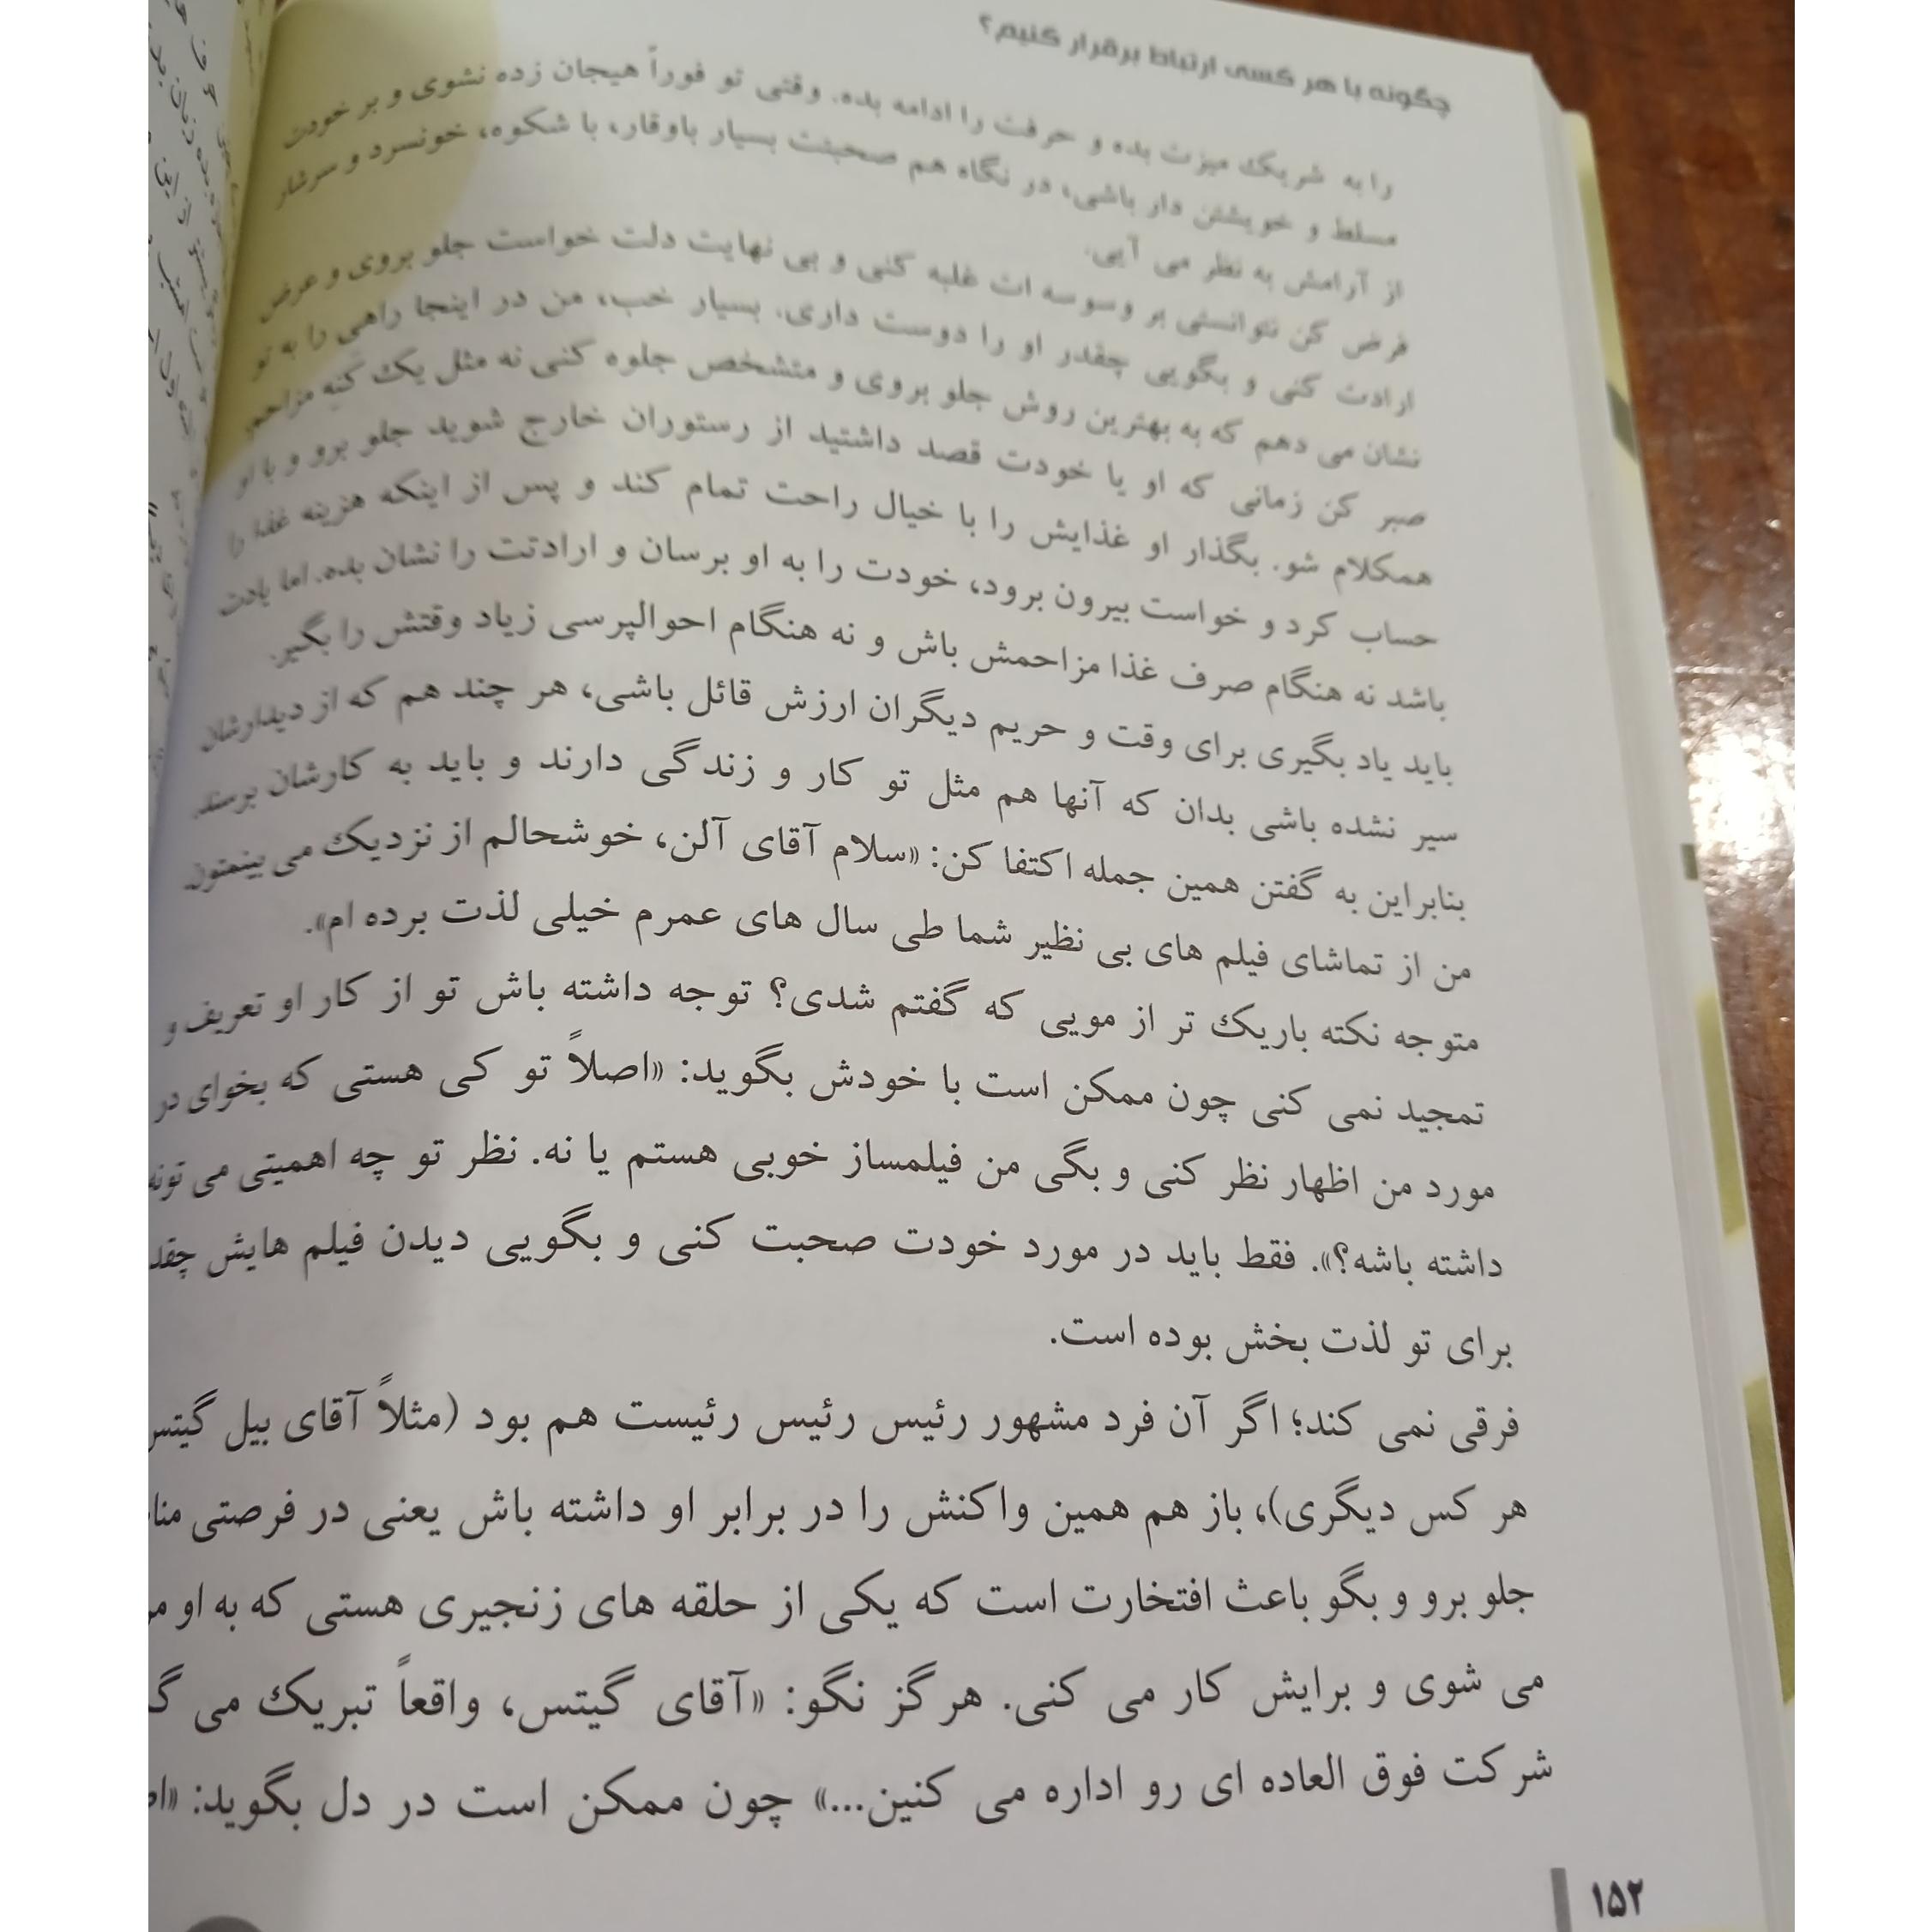 چگونه با هر کسی ارتباط برقرار کنیم؟
را به شریک میزت بده و حرفت را ادامه بده. وقتی تو فوراً هیجان زده نشوی و بر خودت
مسلط و خویشتن دار باشی، در نگاه هم صحبتت بسیار باوقار، با شکوه، خونسرد و سرشار
از آرامش به نظر می آیی.
فرض کن نتوانستی بر وسوسه ات غلبه کنی و بی نهایت دلت خواست جلو بروی و عرض
ارادت کنی و بگویی چقدر او را دوست داری. بسیار خب، من در اینجا راهی را به تو
نشان می دهم که به بهترین روش جلو بروی و متشخص جلوه کنی نه مثل یک کنه مزاحم.
صبر کن زمانی که او یا خودت قصد داشتید از رستوران خارج شوید جلو برو و با او
همکلام شو. بگذار او غذایش را با خیال راحت تمام کند و پس از اینکه هزینه غذا را
حساب کرد و خواست بیرون برود، خودت را به او برسان و ارادتت را نشان بده. اما یادت
باشد نه هنگام صرف غذا مزاحمش باش و نه هنگام احوالپرسی زیاد وقتش را بگیر.
باید یاد بگیری برای وقت و حریم دیگران ارزش قائل باشی، هر چند هم که از دیدارشان
سیر نشده باشی بدان که آنها هم مثل تو کار و زندگی دارند و باید به کارشان برسند.
بنابراین به گفتن همین جمله اکتفا کن: «سلام آقای آلن، خوشحالم از نزدیک می بینمتون.
من از تماشای فیلم های بی نظیر شما طی سال های عمرم خیلی لذت برده ام».
متوجه نکته باریک تر از مویی که گفتم شدی؟ توجه داشته باش تو از کار او تعریف و
تمجید نمی کنی چون ممکن است با خودش بگوید: «اصلاً تو کی هستی که بخوای در
مورد من اظهار نظر کنی و بگی من فیلمساز خوبی هستم یا نه. نظر تو چه اهمیتی می تونه
داشته باشه؟». فقط باید در مورد خودت صحبت کنی و بگویی دیدن فیلم هایش
برای تو لذت بخش بوده است.
فرقی نمی کند؛ اگر آن فرد مشهور رئیس رئیس رئیست هم بود (مثلاً آقای بیل گیتس
هر کس دیگری)، باز هم همین واکنش را در برابر او داشته باش یعنی در فرصتی
جلو برو و بگو باعث افتخارت است که یکی از حلقه های زنجیری هستی که به او
می شوی و برایش کار می کنی. هرگز نگو: «آقای گیتس، واقعاً تبریک می
شرکت فوق العاده ای رو اداره می کنین...» چون ممکن است در دل بگوید:
۱۵۲